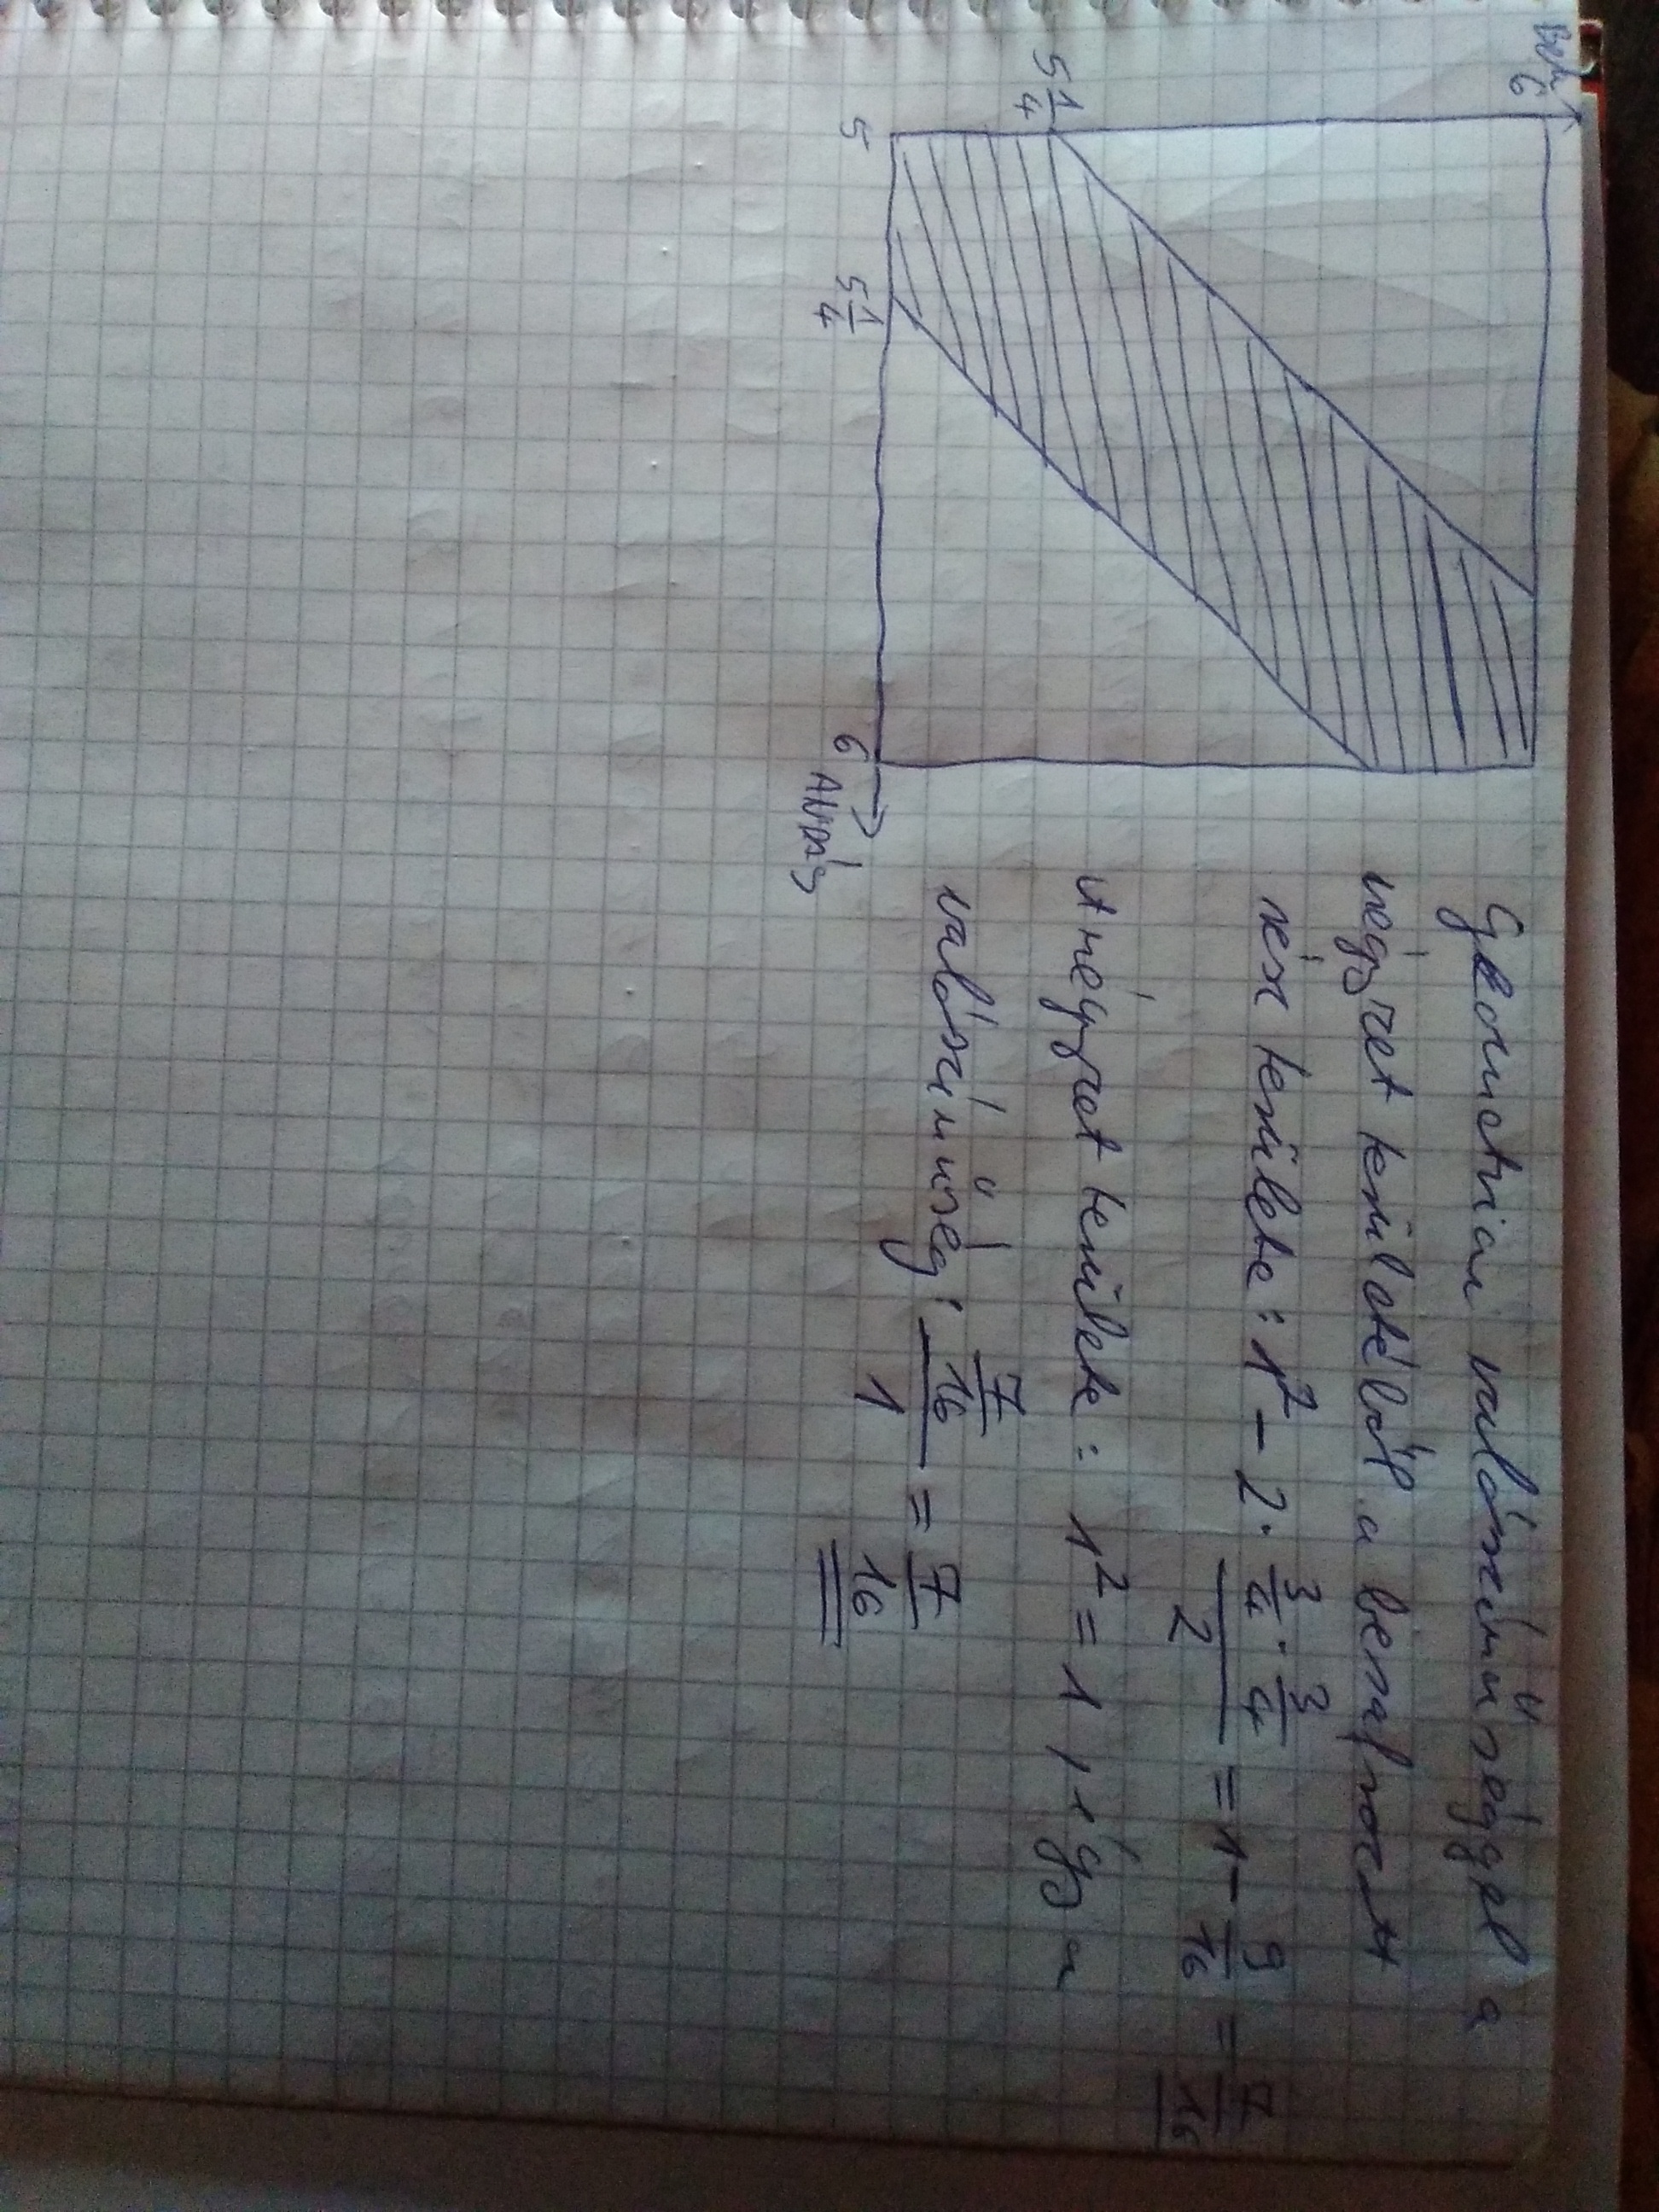 Béla
6
5 1/4
5
5 1/4
6
Almás
Geometriai valószínűséggel a
négyzet területéből a besatírozott
rész területe: 1² - 2 · (3/4 · 3/4)/2 = 1 - 9/16 = 7/16
A négyzet területe: 1² = 1, így a
valószínűség: (7/16)/1 = 7/16